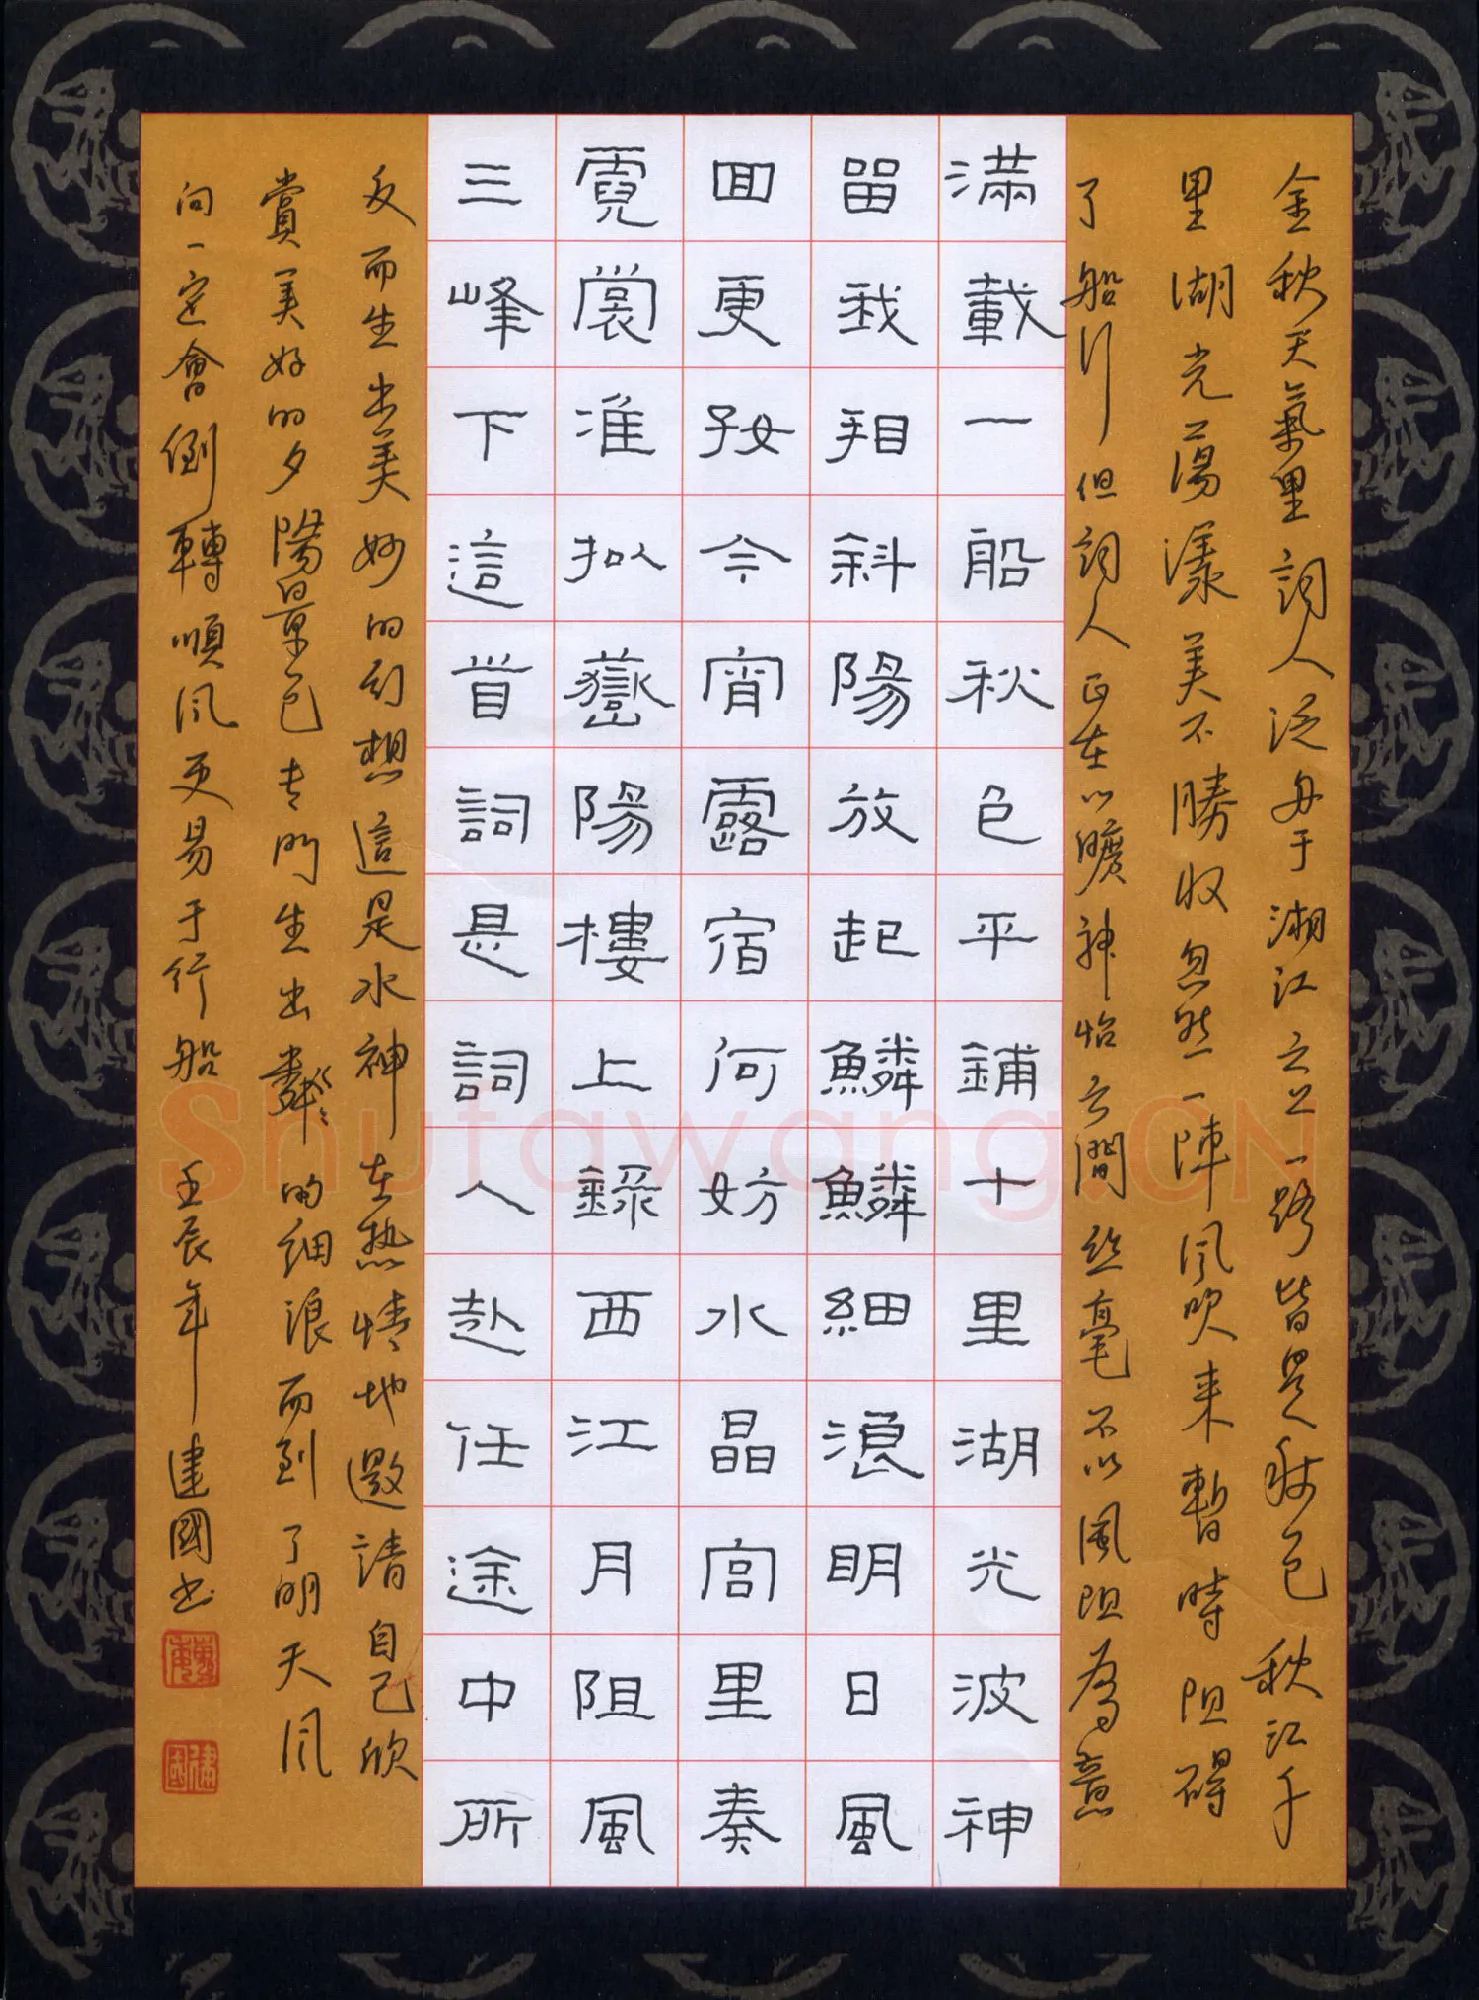 金秋天氣里詞人泛舟于湘江之上一路皆是秋色秋江千
里湖光蕩漾美不勝收忽然一陣風吹来暫時阻碍
了船行但詞人正在心曠神怡之間絲毫不以風阻為意
滿載一船秋色平鋪十里湖光波神
留我看斜陽放起鱗鱗細浪明日風
回更好今宵露宿何妨水晶宫里奏
霓裳准拟嶽陽樓上錄西江月阻風
三峰下這首詞是詞人赴任途中所
反而生出美妙的幻想這是水神在热情地邀請自己欣
賞美好的夕陽景色专門生出粼粼的細浪而到了明天風
向一定會倒轉順風更易于行船 壬辰年建國书
建國
Shufawang.CN